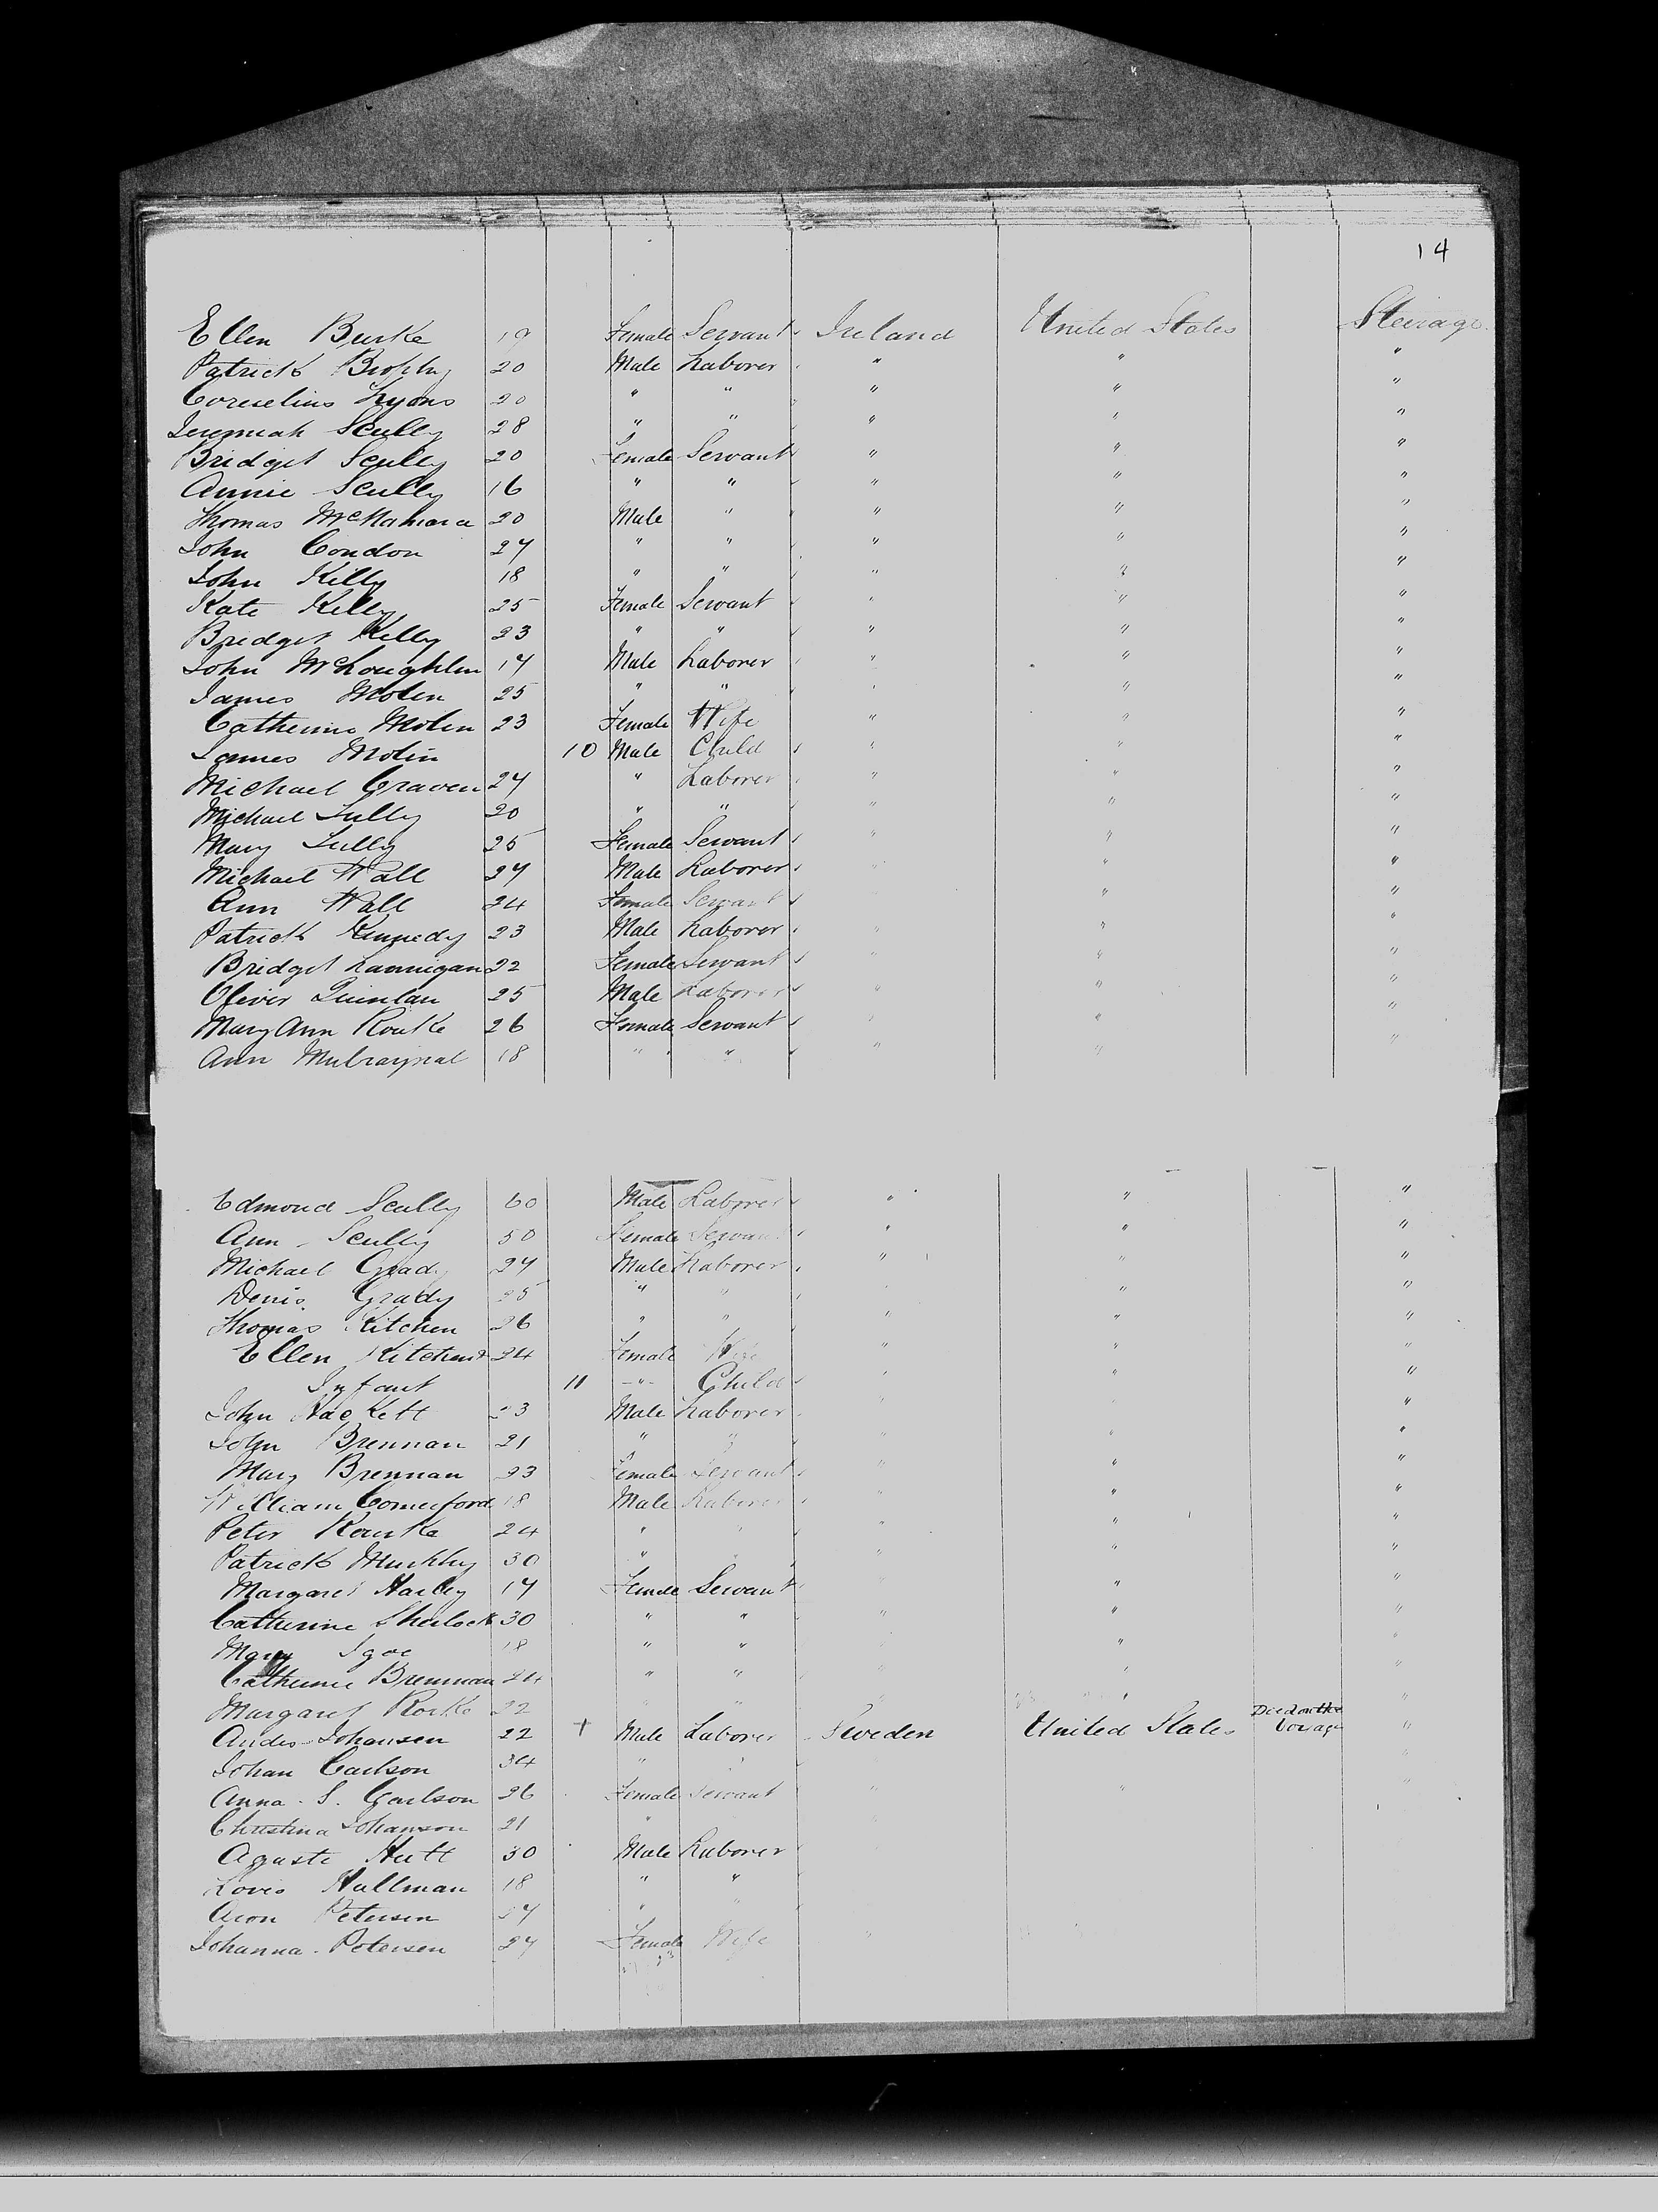 14
Ellen Burke 19 Female Servant Ireland United States Steirage
Patrick Brophy 20 Male Laborer " " "
Corneelius Lyons 20 " " " " "
Jeremiah Scully 28 " " " " "
Bridget Scully 20 Female Servant " " "
Annie Scully 16 " " " " "
Thomas McNamara 20 Male " " " "
John Condon 27 " " " " "
John Killy 18 " " " " "
Kate Kelly 25 Female Servant " " "
Bridget Kelly 23 " " " " "
John McLoughlin 17 Male Laborer " " "
James Molen 25 " " " " "
Catherine Molen 23 Female Wife " " "
James Molin 10 Male Child " " "
Michael Craven 27 " Laborer " " "
Michael Lully 20 " " " " "
Mary Lully 25 Female Servant " " "
Michael Wall 27 Male Laborer " " "
Ann Wall 24 Female Servant " "
Patrick Kennedy 23 Male Laborer " " "
Bridget Lannigan 22 Female Servant " " "
Oliver Quinlan 25 Male Laborer " " "
Mary Ann Rourke 26 Female Servant " " "
Ann 18 " " " " "
Edmond Scully 60 Male Laborer " " "
Ann Scully 50 Female Servant " " "
Michael Grady 27 Male Laborer " " "
Denis Grady 25 " " " " "
Thomas Kitchen 26 " " " " "
Ellen Kitchen 24 Female Wife " " "
Infant 11 " Child " " "
John Hackett 23 Male Laborer " " "
John Brennan 21 " " " " "
Mary Brennan 23 Female Servant " " "
William Comerford 18 Male Laborer " " "
Peter Rourke 24 " " " " "
Patrick Murphy 30 " " " " "
Margaret Harley 17 Female Servant " " "
Catherine Sherlock 30 " " " " "
Mary Igoe 18 " " " "
Catherine Brennan 24 " " " " "
Margaret Rorke 22 " " " " "
Andes Johansen 22 + Male Laborer Sweden United States Died on the Voyage "
Johan Carlson 34 " " "
Anna S. Carlson 26 Female Servant " " "
Christina Johanson 21 "
Aguste Hutt 30 Male Laborer
Lovis Hallman 18 " "
Aron Petersen 27 " "
Johanna Petersen 27 Female Wife "